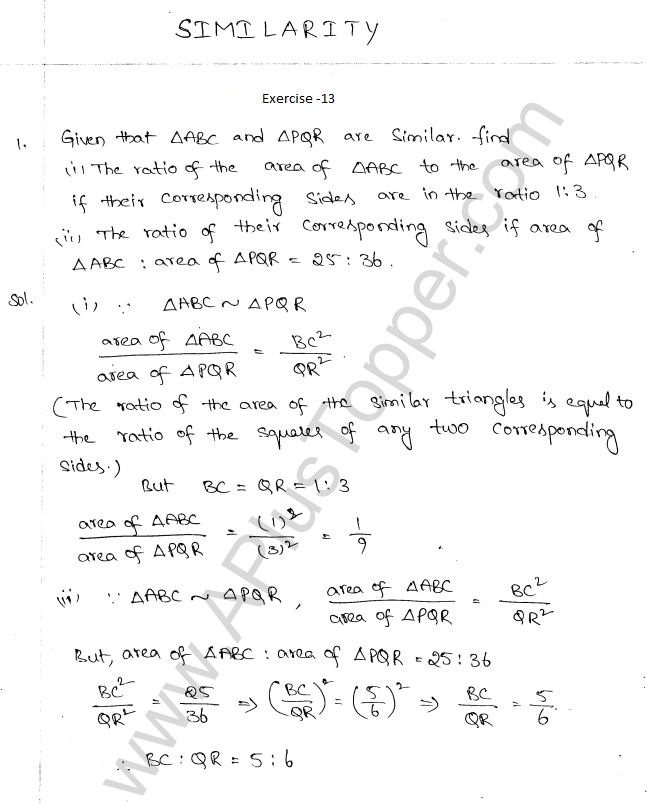 SIMILARITY
Exercise -13
1. Given that ΔABC and ΔPQR are Similar. find
(i) The ratio of the area of ΔABC to the area of ΔPQR
if their Corresponding Sides are in the ratio 1:3.
(ii) The ratio of their Corresponding sides if area of
ΔABC : area of ΔPQR = 25:36.
Sol. (i) ∵ ΔABC ~ ΔPQR
area of ΔABC / area of ΔPQR = BC² / QR².
(The ratio of the area of the similar triangles is equal to
the ratio of the squares of any two Corresponding
Sides.)
But BC = QR = 1:3
area of ΔABC / area of ΔPQR = (1)² / (3)² = 1/9
(ii) ∵ ΔABC ~ ΔPQR, area of ΔABC / area of ΔPQR = BC² / QR²
But, area of ΔABC : area of ΔPQR = 25:36
BC² / QR² = 25/36 => (BC/QR)² = (5/6)² => BC/QR = 5/6.
∴ BC : QR = 5:6
www.APlusTopper.com